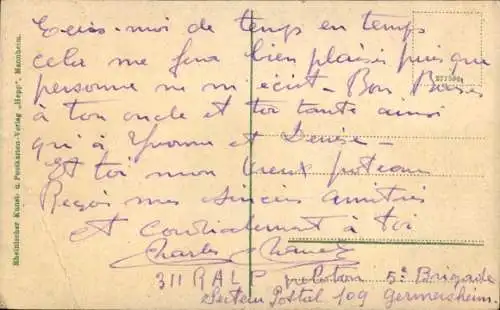 Ecris-moi de temps en temps
cela me fera bien plaisir puisque
personne ne m'écrit - Bon Baiser
à ton oncle et toi tante ainsi
qu'à Yvonne et Denise -
Et toi mon vieux poteau
Reçois mes sincères amitiés
et cordialement à toi
Charles
311 RALP peloton 5e Brigade
Secteur Postal 109 Germersheim.
Rheinischer Kunst- u. Postkarten-Verlag „Hepp", Mannheim.